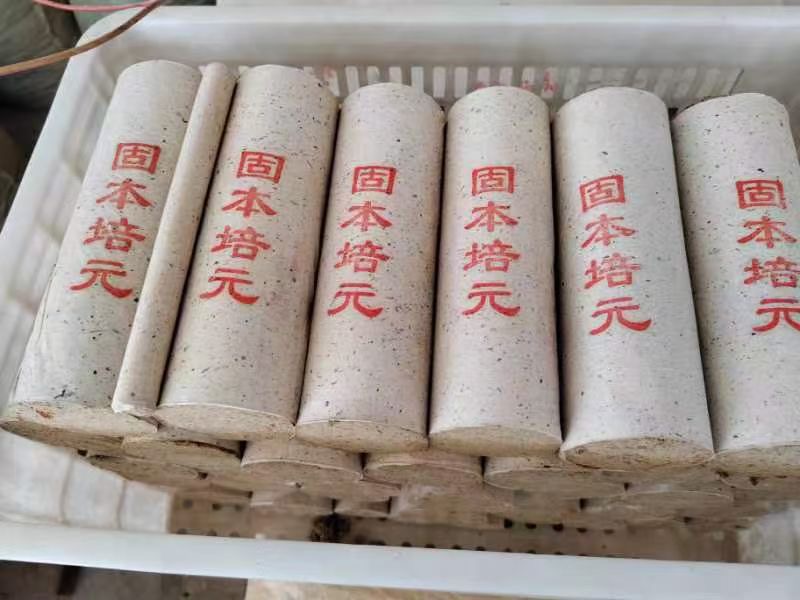 固本培元
固本培元
固本培元
固本培元
固本培元
固本培元